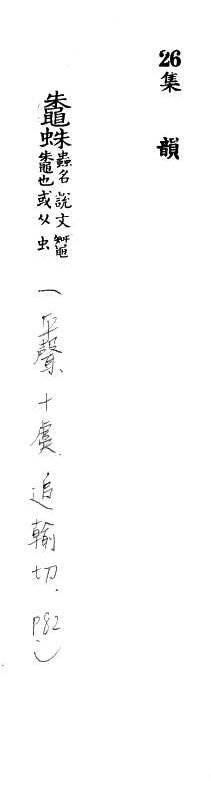 26集 韻
鼄蛛蟲名說文䵹鼄也或从虫(平聲、十虞.追輸切.P82)